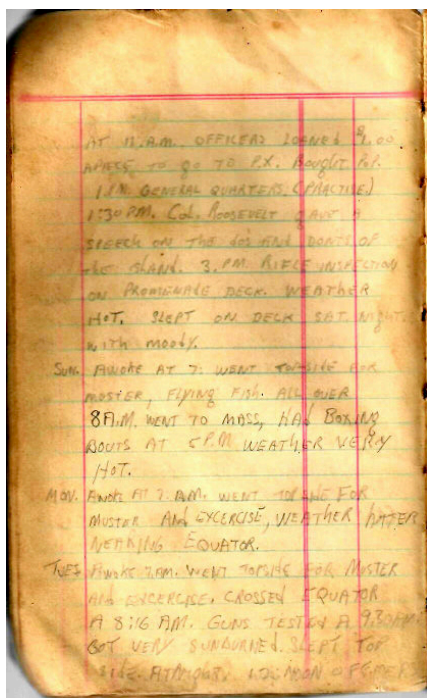 AT 12. A.M. OFFICERS LOANED $1.00
APIECE TO GO TO P.X. BOUGHT POP.
1 P.M. GENERAL QUARTERS. (PRACTISE.)
1:30 P.M. Col. ROOSEVELT GAVE A
SPEECH ON THE do's AND DONTS OF
the ISLAND. 3. P.M. RIFLE INSPECTION
ON PROMENADE DECK. WEATHER
HOT. SLEPT ON DECK SAT. NIGHT.
with moody.
SUN. AWOKE AT 7: WENT TOPSIDE FOR
MUSTER, FLYING FISH. ALL OVER
8 A.M. WENT TO MASS, HAD BOXING
BOUTS AT 5 P.M WEATHER VERY
HOT.
MON. AWOKE AT 7. A.M. WENT TOPSIDE FOR
MUSTER AND EXCERCISE, WEATHER HOTTER
NEARING EQUATOR.
TUES AWOKE 7 A.M. WENT TOPSIDE FOR MUSTER
AND EXCERCISE. CROSSED EQUATOR
A 8:16 A.M. GUNS TESTED A 9.30
GOT VERY SUNBURNED. SLEPT TOP
SIDE.